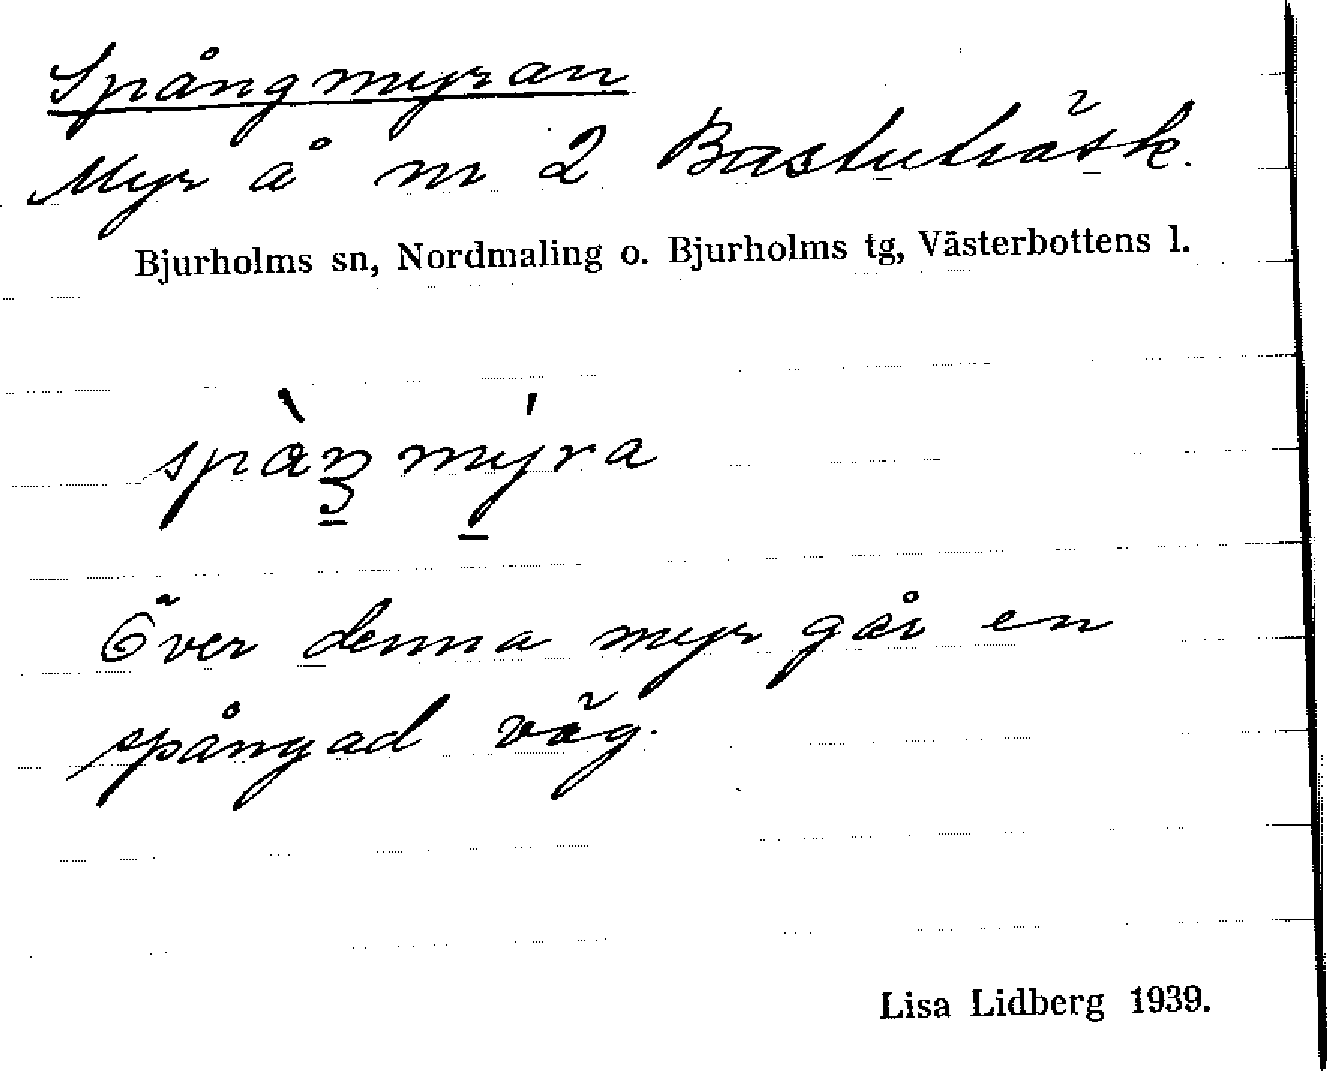 Spångmyran
Myr å m 2 Bastuträsk.
Bjurholms sn, Nordmaling o. Bjurholms tg, Västerbottens l.
Över denna myr går en
spångad väg.
Lisa Lidberg 1939.